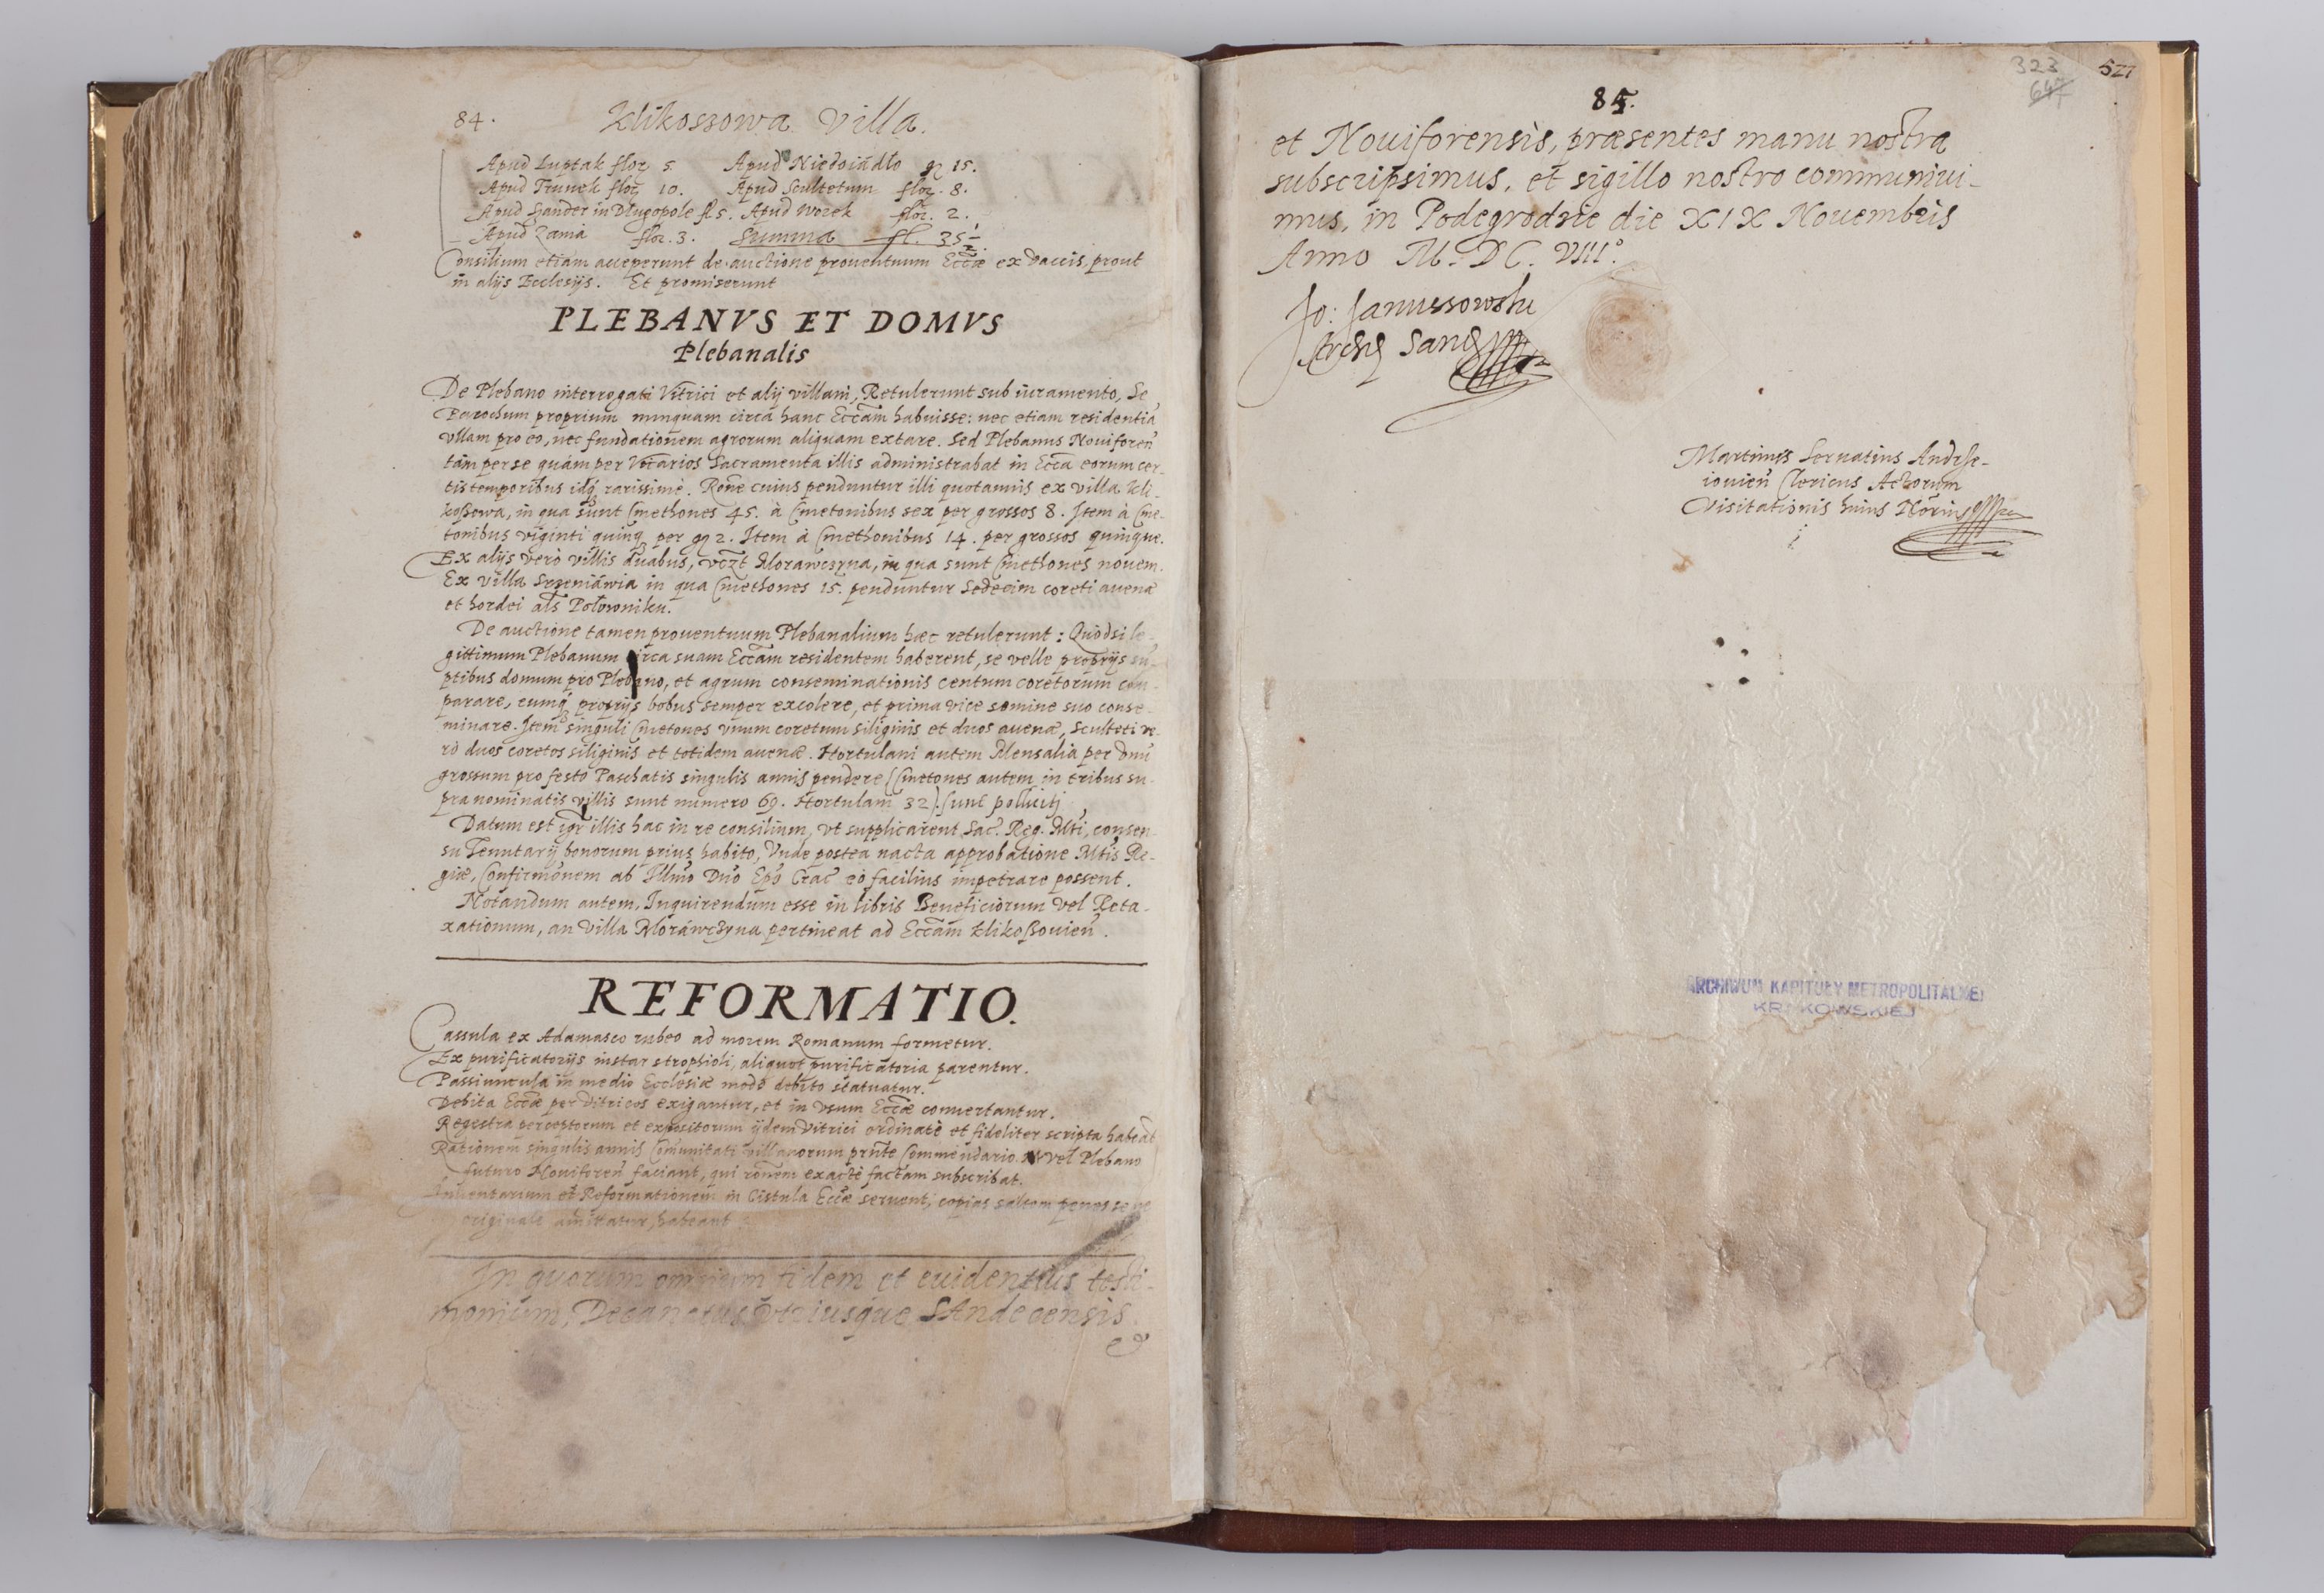 84.
Klikossowa Villa.
Apud Luptak flor. 5. Apud Niedoiádło gr 15.
Apud Trunek flor. 10. Apud Scultetum flor. 8.
Apud Szander in Długopole fl 5. Apud Worek flor. 2.
Apud Zania flor. 3. Summa fl. 35 1/2.
Consilium etiam acceperunt de auctione prouentuum Eccæ ex vaccis, prout
in alijs Ecclesijs. Et promiserunt
PLEBANVS ET DOMVS
Plebanalis
De Plebano interrogati Vitrici et alij villani, Retulerunt sub iuramento, Se
Parochum proprium nunquam circa hanc Eccãm habuisse: nec etiam residentiã
vllam pro eo, nec fundationem agrorum aliquam extare. Sed Plebanus Nouiforen̄
tam per se quám per Vicarios Sacramenta illis administrabat in Ecca eorum cer-
tis temporibus idq́ rarissimè. Rone cuius penduntur illi quotannis ex villa Kli-
koßowa, in qua sunt Cmethones 45. à Cmetonibus sex per grossos 8. Item à Cme-
tonibus viginti quinq per gr 2. Item à Cmethonibus 14. per grossos quinque.
Ex alijs verò villis duabus, vczt Morawczyna, in qua sunt Cmethones nouem.
Ex villa Srzeniáwia in qua Cmethones 15. penduntur Sedecim coreti auenæ
et hordei als Połowniku.
De auctione tamen prouentuum Plebanalium hæc retulerunt: Quòd si le-
gittimum Plebanum circa suam Eccãm residentem haberent, se velle proprijs su-
ptibus domum pro Plebano, et agrum conseminationis centum coretorum com-
parare, eumq́ proprijs bobus semper excolere, et prima vice semine suo conse-
minare. Item singuli Cmetones vnum coretum siliginis et duos auenæ, Sculteti ve-
rò duos coretos siliginis et totidem auenæ. Hortulani autem Mensalia per vnũ
grossum pro festo Paschatis singulis annis pendere (Cmetones autem in tribus su-
pra nominatis villis sunt numero 69. Hortulani 32) sunt polliciti
Datum est igr illis hac in re consilium, vt supplicarent Sac. Reg. Mti, consen-
su Tenutarij bonorum prius habito, Vnde postea nacta approbatione Mtis Re-
giæ, Confirmõnem ab Illmo Dno Epo Crac eò facilius impetrare possent.
Notandum autem, Inquirendum esse in libris Beneficiorum vel Reta-
xationum, an villa Moráwczyna pertineat ad Eccãm Klikoßouien̄.
REFORMATIO.
Cassula ex Adamasco rubeo ad morem Romanum formetur.
Ex purificatorijs instar strophioli, aliquot purificatoria parentur.
Passiuncula in medio Ecclesiæ modo debito statuatur.
Debita Eccæ per Vitricos exigantur, et in vsum Eccæ conuertantur.
Regestra perceptorum et expositorum ijdem Vitrici ordinatè et fideliter scripta habeãt
Rationem singulis annis Comunitati villanorum prñte Commendario vel Plebano
futuro Nouiforen̄ faciant, qui rõnem exactè factam subscribat.
Inuentarium et Reformationem in Cistula Eccæ seruent, copias saltem penes se ne
originale amittatur, habeant
In quorum omnium fidem et euidentius testi-
monium, Decanatus vtriusque SAndecensis
et
323
647
527
85.
et Nouiforensis, præsentes manu nostra
subscripsimus, et sigillo nostro communiui-
mus, in Podegrodzie die XIX Nouembris
Anno M. DC. VIII°.
Jo: Januszowski
Archid Sandecen
Martinus Seruatius Andrze-
iouien̄ Clericus Actorum
Visitationis huius Notarius
ARCHIWUM KAPITUŁY METROPOLITALNEJ
KRAKOWSKIEJ